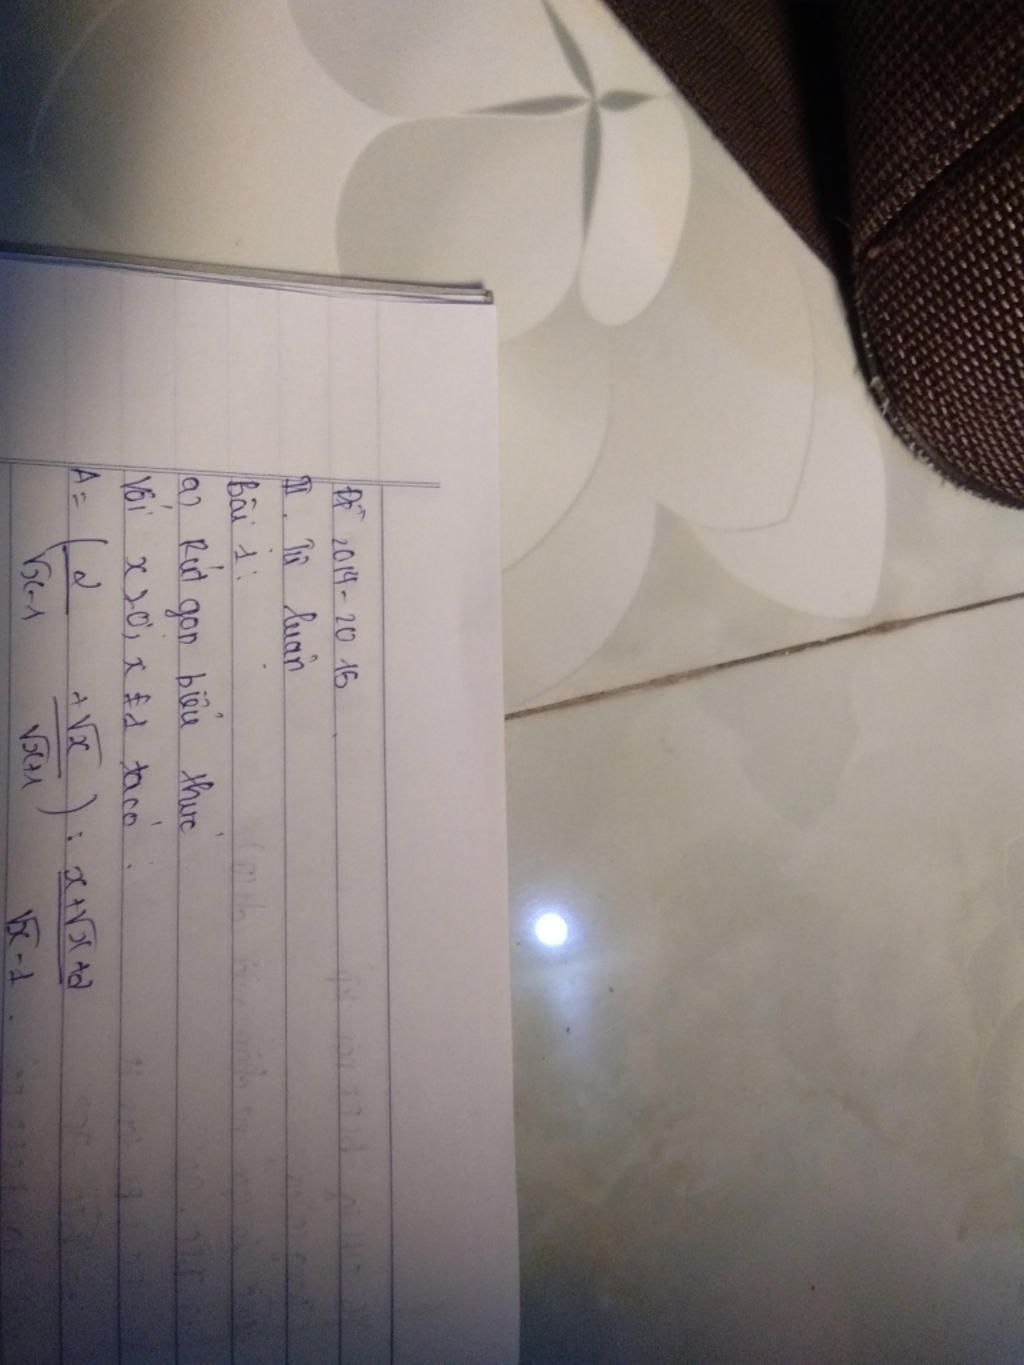 Đề 2014-2015.
II. Tự luận
Bài 1:
a) Rút gọn biểu thức
Với x>0; x≠1 ta có.
A = (2/√x-1 + √x/√x+1) : x+√x+2/√x-1.